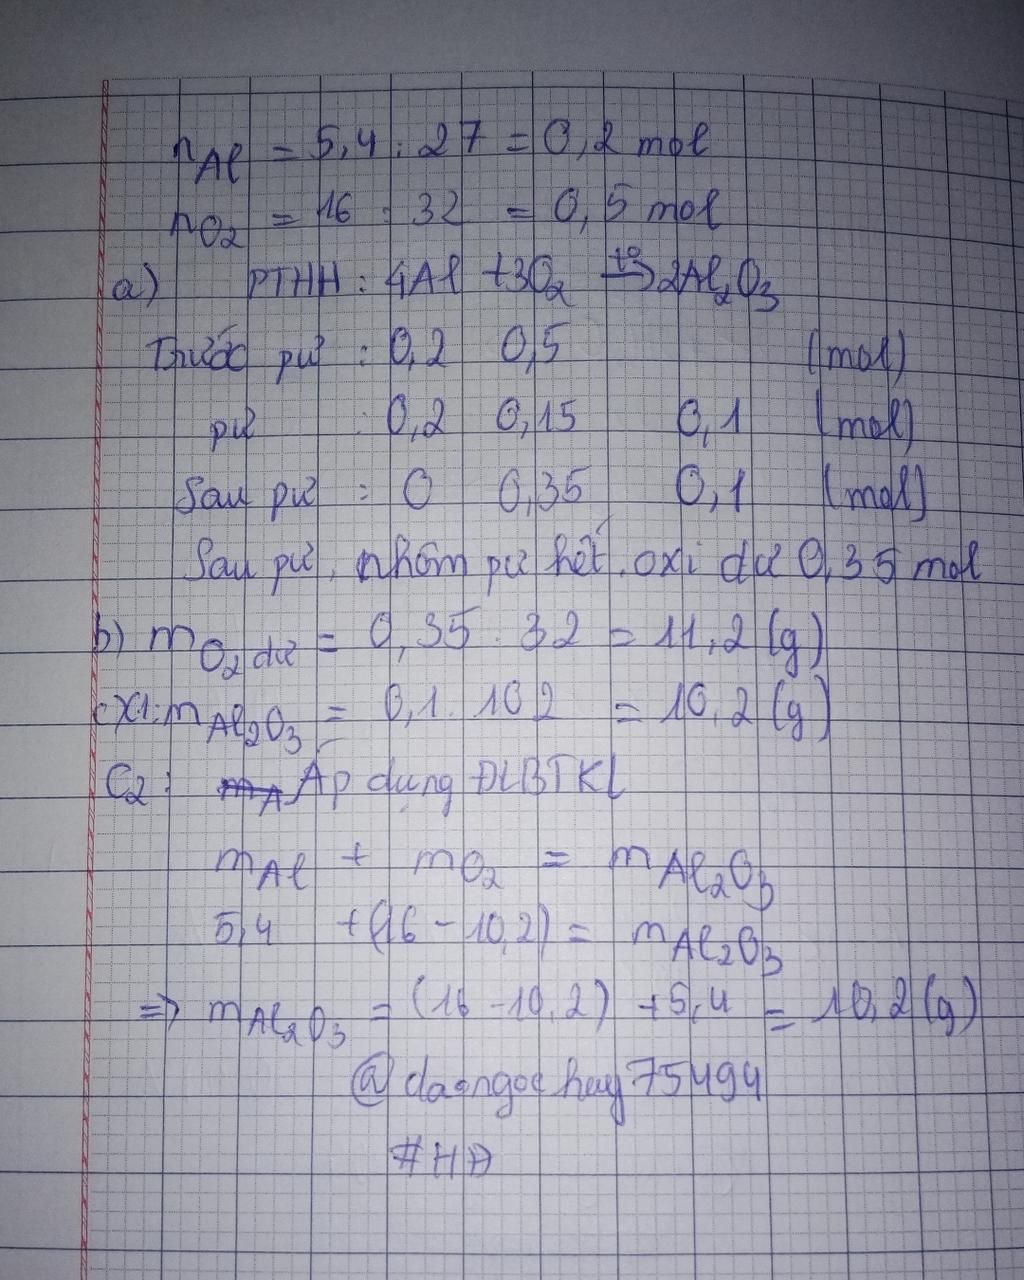 nAl = 5,4 : 27 = 0,2 mol
nO2 = 16 : 32 = 0,5 mol
a) PTHH : 4Al + 3O2 t°→ 2Al2O3
Trước pư : 0,2 0,5 (mol)
pư : 0,2 0,15 0,1 (mol)
Sau pư : 0 0,35 0,1 (mol)
Sau pư, nhôm pư hết. oxi dư 0,35 mol
b) mO2 dư = 0,35 . 32 = 11,2 (g)
c) C1: mAl2O3 = 0,1 . 102 = 10,2 (g)
C2 : Áp dụng ĐLBTKL
mAl + mO2 = mAl2O3
5,4 + (16 - 10,2) = mAl2O3
=> mAl2O3 = (16 - 10,2) + 5,4 = 10,2 (g)
@ daongochay75494
#HĐ